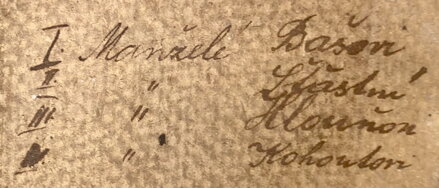 I Manželé Bašovi
II " Šťastní
III " Hlouňovi
" Kohoutovi